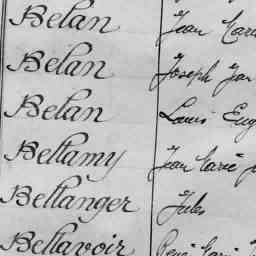 Belan Jean Marie
Belan Joseph Jean
Belan Louis Eug
Bellamy Jean Marie
Bellanger Jules
Bellavoir René Marie